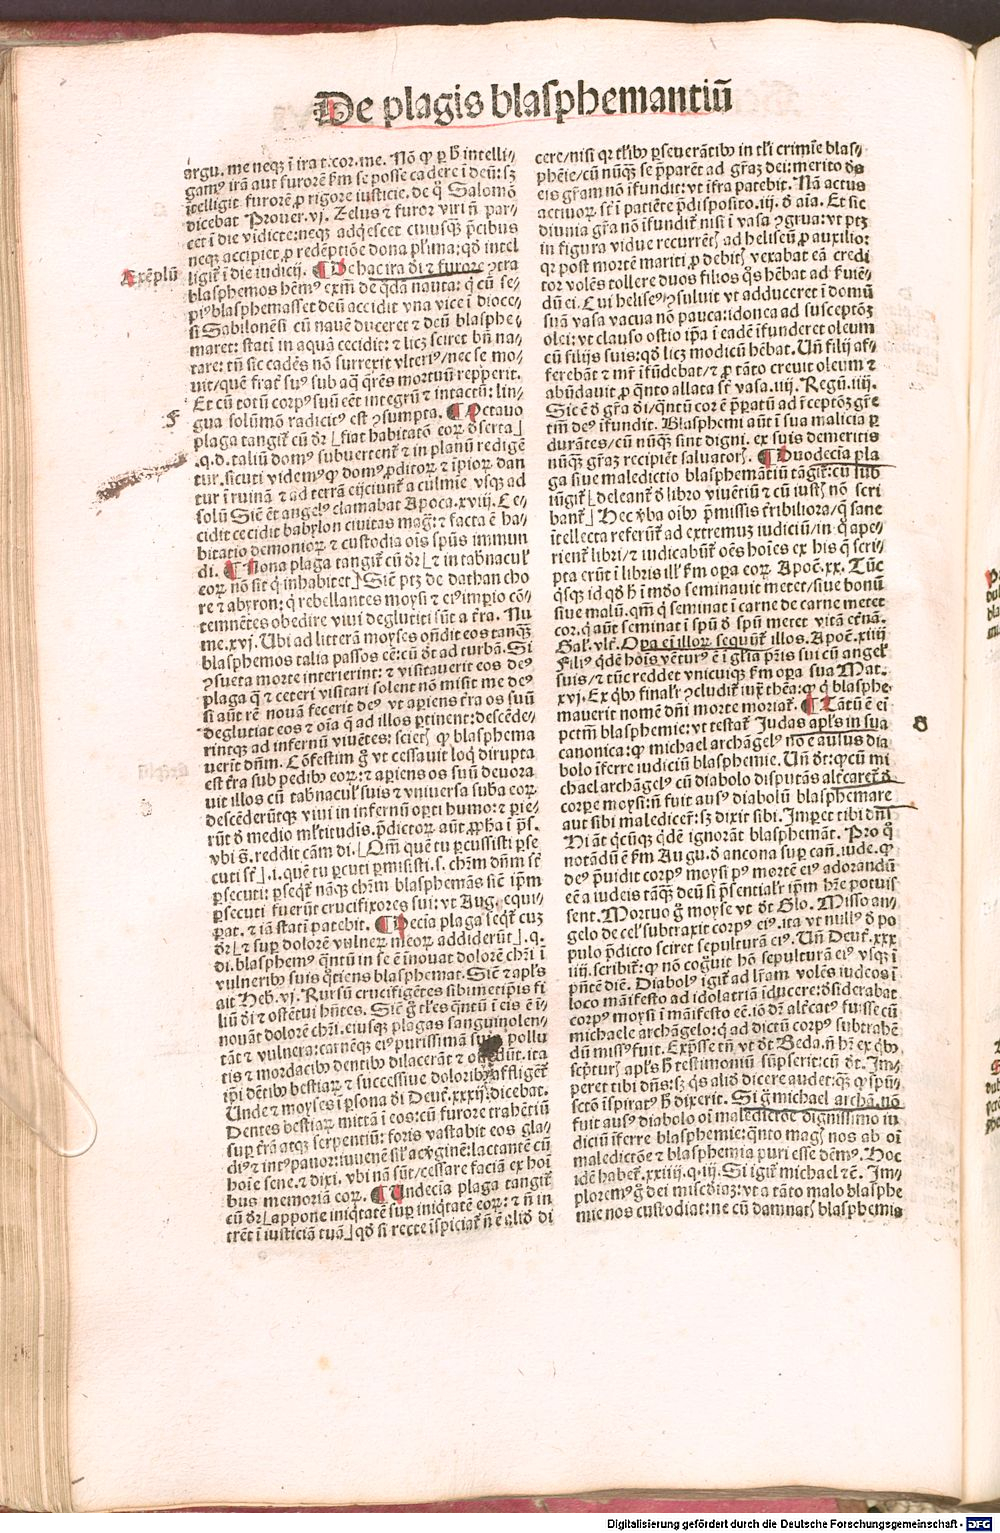 De plagis blasphemantiū
argu. me neqꝫ ī ira t. cor. me. Nō ꝙ ꝑ h̄ intelli/
gamꝰ irā aut furorē ẜm se posse cadere ī deū: sꝫ
ītelligit furorē ꝓ rigore iusticie. de q̄ Salomō
dicebat Prouer. vj. Zelus ⁊ furor viri nō par/
cet ī die vidicte: neqꝫ adqͥescet cuiusqꝫ p̄cibus
neqꝫ accipiet ꝓ redēptiōe dona pl'ima: qd̓ intel
ligit̄ ī die iudicij. ¶ De hac ira dī ⁊ furore ꝯtra
Exēplū
blasphemos hēmꝰ exm̄ de q̄dā nauta: qͥ cū se/
piꝰ blasphemasset deū accidit vna vice ī dioce/
si Sabilonēsi cū nauē duceret ⁊ deū blasphe/
maret: statī in aquā cecidit: ⁊ licꝫ sciret bn̄ na/
tare: tn̄ sic cadēs nō surrexit vlteriꝰ/nec se mo/
uit/quē frat̄ suꝰ sub aq̄ q̄rēs mortuū repperit.
Et cū totū corpꝰ suū eēt integrū ⁊ intactū: lin/
gua solūmō radicitꝰ est ꝯsumpta. ¶ Octauo
plaga tangit̄ cū dr̄ ⌊fiat habitatō eorꝝ d̓serta⌋
.q.d. taliū domꝰ subuertent̄ ⁊ in planū redigē
tur. sicuti videmꝰ ꝙ domꝰ ꝓditorꝝ ⁊ īpiorꝝ dan
tur ī ruinā ⁊ ad terrā eijciunt̄ a culmie vsqꝫ ad
solū Sic ēt angelꝰ clamabat Apoca. xviij. Ce/
cidit cecidit babylon ciuitas mag: ⁊ facta ē ha/
bitatio demoniorꝝ ⁊ custodia ois spūs immun
di. ¶ Nona plaga tangit̄ cū dr̄ ⌊⁊ in tabnacul'
eorꝝ nō sit qͥ inhabitet⌋ Sic ptꝫ de dathan cho
re ⁊ abyron: qͥ rebellantes moysi ⁊ eiꝰ imperio cō/
temnētes obedire viui deglutiti sūt a t̄ra. Nu
me. xvj. Ubi ad litterā moyses on̄dit eos tanqꝫ
blasphemos talia passos eē: cū d̄t ad turbā. Si
ꝯsueta morte interierint: ⁊ visitauerit eos deꝰ
plaga q̄ ⁊ ceteri visitari solent nō misit me deꝰ
si aūt rē nouā fecerit deꝰ vt aperiens t̄ra os suū
deglutiat eos ⁊ oīa q̄ ad illos ꝑtinent: descēde/
rintqꝫ ad infernū viuētes: scietꝭ ꝙ blasphema
uerīt dn̄m. Cōfestim g̊ vt cessauit loqͥ dirupta
est t̄ra sub pedibꝰ eorꝝ: ⁊ aperiens os suū deuora
uit illos cū tabnacul' suis ⁊ vniuersa suba eorꝝ
descēderūtqꝫ viui in infernū opti humo: ⁊ pie/
rūt d̓ medio ml'titudīs. p̄dictorꝝ aūt ꝓpha ī ps̄.
vbi s̄. reddit cām dī. ⌊Qm̄ quē tu ꝑcussisti ꝑse
cuti sūt⌋ .i. quē tu ꝑcuti ꝑmisisti. s. chr̄m dn̄m st̄
ꝑsecuti: ꝑseqͥt̄ nāqꝫ chr̄m blasphemās sic ip̄m
ꝑsecuti fuerūt crucifixores sui: vt Aug. equi/
ꝑat. ⁊ iā statī patebit. ¶ Decia plaga seqͥt̄ cuꝫ
dr̄ ⌊⁊ suꝑ dolorē vulnerꝝ meorꝝ addiderūt⌋ .q.
di. blasphemꝰ qͣntū in se ē īnouat dolorē chr̄i ī
vulneribꝰ suis qͦtiens blasphemat. Sic ⁊ apl's
ait Heb. vj. Rursū crucifigētes sibimetip̄is fi
liū di ⁊ ostētui hn̄tes. Sic g̊ tales qͣntū ī eis ē ī/
nouāt dolorē chr̄i. eiusqꝫ plagas sanguinolen/
tāt ⁊ vulnera: carnēqꝫ eiꝰ purissimā suis pollu
tis ⁊ mordacibꝰ dentibꝰ dilacerāt ita
ip̄i dētibꝰ bestiarꝝ ⁊ successiue doloribꝰ affligēt̄
Unde ⁊ moyses ī ꝑsona di Deut̄. xxxij. dicebat.
Dentes bestiarꝝ mittā ī eos: cū furore trahētiū
suꝑ t̄rā atqꝫ serpentiū: foris vastabit eos gla/
diꝰ ⁊ intꝰ pauor: iuuenē sil' ac v̓ginē: lactantē cū
hoīe sene. ⁊ dixi. vbi nā sūt/cessare faciā ex hoi
bus memoriā eorꝝ. ¶ Undecia plaga tangit̄
cū dr̄ ⌊appone iniqͥtatē suꝑ iniqͥtatē eorꝝ: ⁊ nō in
trēt ī iusticiā tuā⌋ qd̓ si recte īspiciat̄ nō ē aliđ di
cere/nisi qꝛ talibꝰ ꝑseuerātibꝰ in tali crimīe blas/
phēie/cū nūqꝫ se p̄parēt ad gr̄az dei: merito d̓s
eis gr̄am nō īfundit: vt īfra patebit. Nā actus
actiuorꝝ sūt ī patiēte p̄disposito. iij. d̓ aīa. Et sic
diuina gr̄a nō īfundit̄ nisi ī vasa ꝯgrua: vt ptꝫ
in figura vidue recurrētꝭ ad heliseū ꝓ auxilio:
qꝛ post mortē mariti ꝓ debitꝭ vexabat eā credi
tor volēs tollere duos filios qͦs hēbat ad ẜuiē/
dū ei. Cui heliseꝰ ꝯsuluit vt adduceret ī domū
suā vasa vacua nō pauca: idonea ad susceptōꝫ
olei: vt clauso ostio ip̄a ī eadē īfunderet oleum
cū filijs suis: qd̓ licꝫ modicū hēbat. Un̄ filij af/
ferebāt ⁊ mr̄ īfūdebat/⁊ ꝓ tāto creuit oleum ⁊
abūdauit ꝓ qͣnto allata sūt vasa. iiij. Regū. iiij.
Sic ē d̓ gr̄a di/qͣntū cor ē p̄patū ad īceptōꝫ gr̄e
tm̄ deꝰ īfundit. Blasphemi aūt ī sua malicia ꝑ
durātes/cū nūqꝫ sint digni. ex suis demeritis
nūqꝫ gr̄az recipiēt saluatorꝭ. ¶ Duodecia pla
ga siue maledictio blasphemātiū tāgit̄: cū sub
iūgit̄ ⌊deleant̄ d̓ libro viuētiū ⁊ cū iustꝭ nō scri
bant̄⌋ Hec v̓ba oibꝰ p̄missis t̄ribiliora/qͥ sane
ītellecta referūt̄ ad extremuꝫ iudiciū/in qͦ ape/
rient̄ libri/⁊ iudicabūt̄ oēs hoīes ex his q̄ scri/
pta erūt ī libris ill' ẜm oꝑa eorꝝ Apoc̄. xx. Tūc
qͥsqꝫ id qd̓ h̄ ī mūdo seminauit metet/siue bonū
siue malū. qm̄ qͥ seminat ī carne de carne metet
cor. qͥ aūt seminat ī spū d̓ spū metet vitā et̓nā.
Gal'. vlt̄. Oꝑa ei illorꝝ sequūt̄ illos. Apoc̄. xiiij
Filiꝰ qͥdē hoīs vētur' ē ī gl'ia pr̄is sui cū angel'
suis/⁊ tūc reddet vnicuiqꝫ ẜm oꝑa sua Mat.
xvj. Ex qͥbꝰ final'r ꝯcludit̄ iux̄ thēa: ꝙ qͥ blasphe
mauerit nomē dn̄i morte moriat̄. ¶ Tātū ē ei
pctm̄ blasphemie: vt testat̄ Judas apl's in sua
8
canonica: ꝙ michael archāgelꝰ nō ē ausus dia
bolo īferre iudiciū blasphemie. Un̄ d̄t: ꝙ cū mi
chael archāgelꝰ cū diabolo disputās altcaret̄ d̓
corpe moysi: nō fuit ausꝰ diabolū blasphemare
aut sibi maledicere: sꝫ dixit sibi. Impet tibi dn̄s
Hi āt qͥcūqꝫ qͥdē ignorāt blasphemāt. Pro qͦ
notādū ē ẜm Augu. d̓ ancona suꝑ can̄. iude. ꝙ
deꝰ p̄uidit corpꝰ moysi pꝰ mortē eiꝰ adorandū
eē a iudeis tāqꝫ deū si p̄sential'r ip̄m hr̄e potuis
sent. Mortuo g̊ moyse vt d̄t Glo. Misso an/
gelo de cel' subtraxit corpꝰ eiꝰ. ita vt nullꝰ d̓ po
pulo p̄dicto sciret sepulturā eiꝰ. Un̄ Deut̄. xxx
iiij. scribit̄: ꝙ nō cogͦuit hō sepulturā eiꝰ vsqꝫ ī
pn̄tē diē. Diabolꝰ igit̄ ad l'ram volēs iudeos ī
loco māifesto ad idolatriā īducere: d̓siderabat
corpꝰ moysi ī māifesto eē. iō dr̄ altcatꝰ fuisse cū
michaele archāgelo: qͥ ad dictū corpꝰ subtrahē
dū missꝰ fuit. Exp̄sse tn̄ vt d̄t Beda. nō hr̄ ex qͥbꝰ
sc̄pturꝭ apl's h̄ testimoniū sūpserit: cū d̄t. Im/
peret tibi dn̄s: sꝫ qͥs aliđ dicere audet: qꝫ ꝙ spū/
sctō īspiratꝰ h̄ dixerit. Si g̊ michael archā. nō
fuit ausꝰ diabolo oī maledictōe dignissimo iu
diciū īferre blasphemie: qͣnto magꝭ nos ab oī
maledictōe ⁊ blasphemia puri esse dēmꝰ. Hoc
idē habet̄. xxiiij. q. iij. Si igit̄ michael ⁊c̄. Im/
ploremꝰ g̊ dei mīscd̓iaꝫ: vt a tāto malo blasphe
mie nos custodiat: ne cū damnatꝭ blasphemis
Digitalisierung gefördert durch die Deutsche Forschungsgemeinschaft - DFG